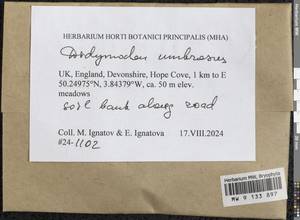 HERBARIUM HORTI BOTANICI PRINCIPALIS (MHA)
Didymodon umbrosus
UK, England, Devonshire, Hope Cove, 1 km to E
50.24975°N, 3.84379°W, ca. 50 m elev.
meadows
soil bank along road
Coll. M. Ignatov & E. Ignatova 17.VIII.2024
#24-1102
Herbarium MW, Bryophyta
MW 9 133 897